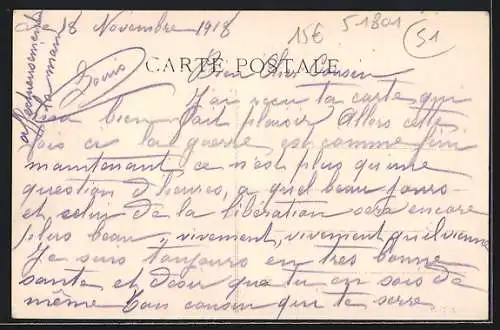 Le 18 Novembre 1918
15€ 51801
51
CARTE POSTALE
Bien Cher Cousin
J'ai reçu ta carte qui
bien fait plaisir Allors cette
fois ci la guerre est comme fini
maintenant ce n'est plus qu'une
question d'heures, a quel beau jours
et celui de la libération sera encore
plus beau, vivement, vivement, qu'el vienne
Je suis toujours en très bonne
santé et désir que tu en sois de
même Ton cousin qui te serre
affectueusement
la main
Louis